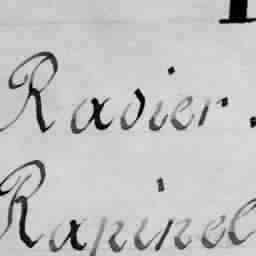 Ravier.
Rapinel